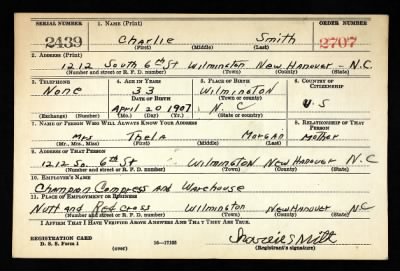 SERIAL NUMBER 1. NAME (Print) ORDER NUMBER
2439 Charlie Smith 2707
(First) (Middle) (Last)
2. ADDRESS (Print)
1212 South 6th St Wilmington New Hanover - N.C
(Number and street or R. F. D. number) (Town) (County) (State)
3. TELEPHONE 4. AGE IN YEARS 5. PLACE OF BIRTH 6. COUNTRY OF CITIZENSHIP
None 33 Wilmington
DATE OF BIRTH (Town or county)
April 20 1907 N.C U S
(Exchange) (Number) (Mo.) (Day) (Yr.) (State or country)
7. NAME OF PERSON WHO WILL ALWAYS KNOW YOUR ADDRESS 8. RELATIONSHIP OF THAT PERSON
Mrs Thela Morgan Mother
(Mr., Mrs., Miss) (First) (Middle) (Last)
9. ADDRESS OF THAT PERSON
1212 So. 6th St - Wilmington New Hanover N.C
(Number and street or R. F. D. number) (Town) (County) (State)
10. EMPLOYER'S NAME
Champion Compress and Warehouse
11. PLACE OF EMPLOYMENT OR BUSINESS
Nutt and Red Cross Wilmington New Hanover N.C
(Number and street or R. F. D. number) (Town) (County) (State)
I AFFIRM THAT I HAVE VERIFIED ABOVE ANSWERS AND THAT THEY ARE TRUE.
REGISTRATION CARD
D. S. S. Form 1 (over) 16—17105
(Registrant's signature)